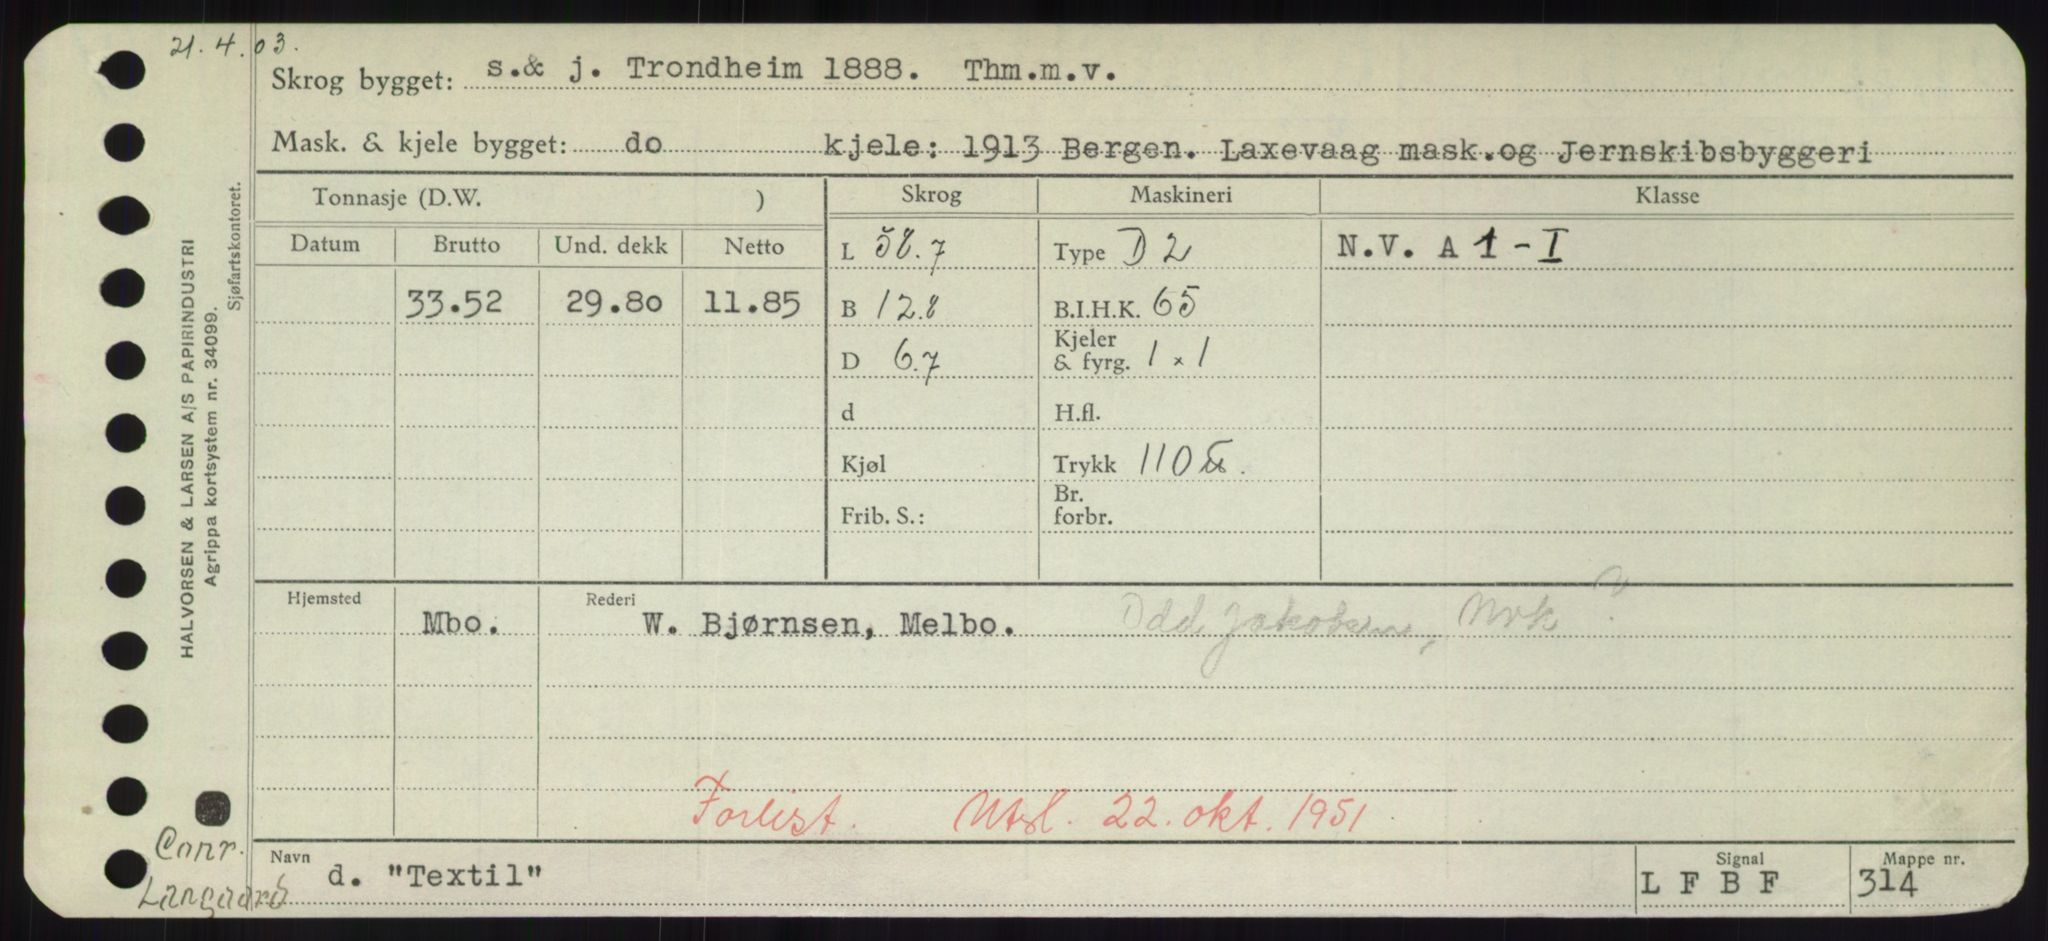 21.4.03.
Skrog bygget: s.& j. Trondheim 1888. Thm.m.v.
Mask. & kjele bygget: do kjele: 1913 Bergen. Laxevaag mask.og Jernskibsbyggeri
Tonnasje (D.W. ) Skrog Maskineri Klasse
Datum Brutto Und. dekk Netto L 58.7 Type D 2 N.V. A 1 - I
33.52 29.80 11.85 B 12.8 B.I.H.K. 65
D 6.7 Kjeler & fyrg. 1 x 1
d H.fl.
Kjøl Trykk 110 ℔.
Frib. S.: Br. forbr.
Hjemsted Rederi
Mbo. W. Bjørnsen, Melbo. Odd Jakobsen, Nvk ?
Forlist. Utsl. 22. okt. 1951
Navn Signal Mappe nr.
d. "Textil" L F B F 314
HALVORSEN & LARSEN A/S PAPIRINDUSTRI
Agrippa kortsystem nr. 34099.
Sjøfartskontoret.
Conr.
Langaard